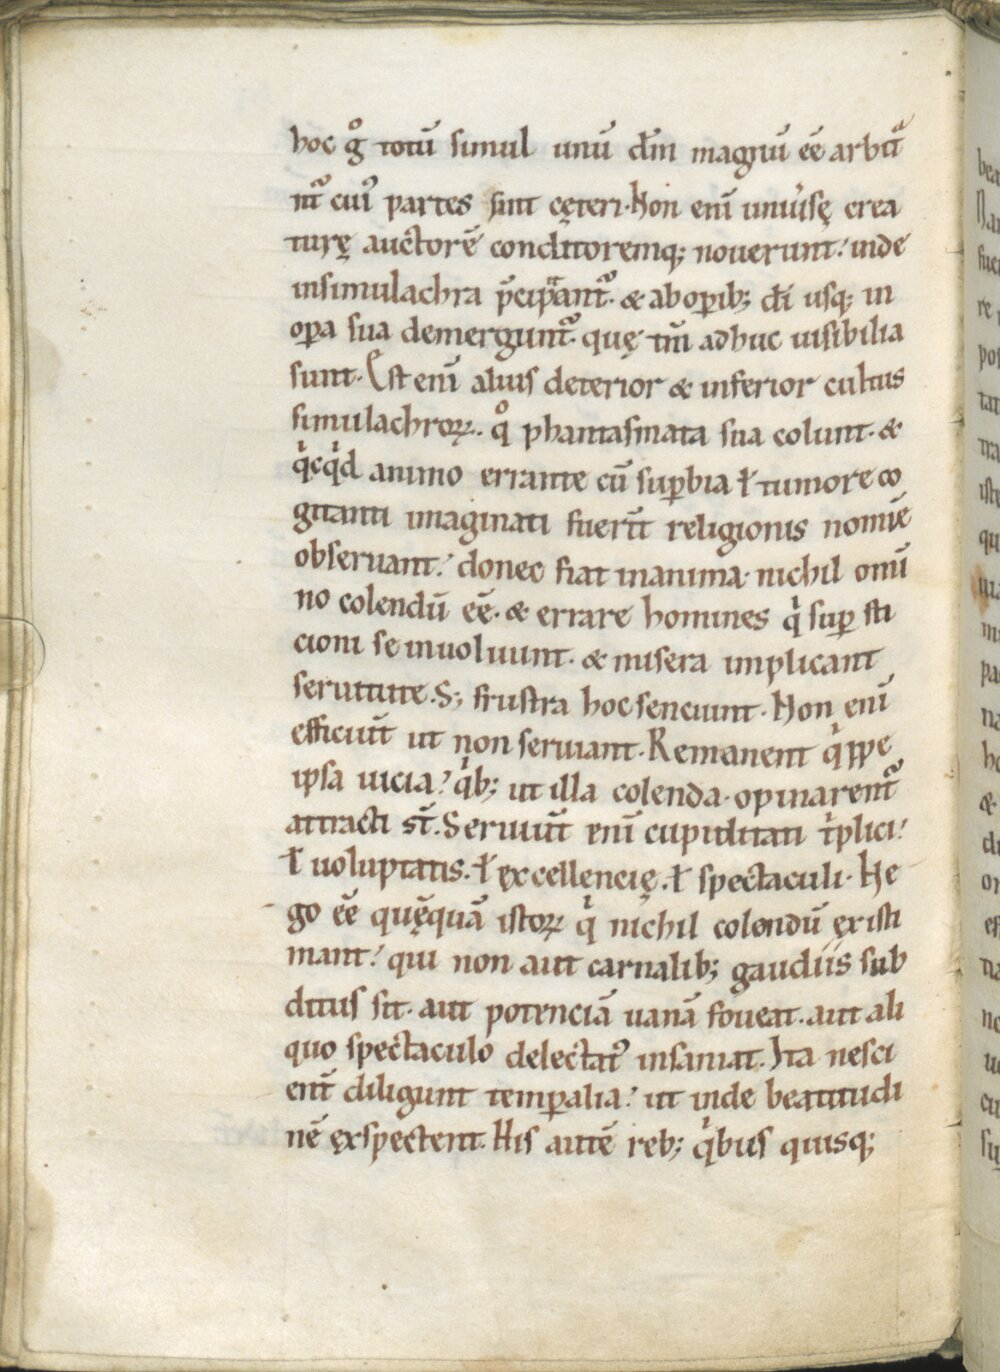 hoc gͦ totū simul unū dm̄ magnū eē arbitͣ
nt᷑ cui᷒ partes sint cęteri. Non enī uniuͥsę crea
turę auctorē conditoremq; nouerunt: inde
insimulachra p̄cipͥtant᷑. & aboꝑib; dī usq; in
oꝑa sua demergunt᷑. quę tm̄ adhuc uisibilia
sunt. Est enī alius deterior & inferior cultus
simulachroꝝ. qͦ phantasmata sua colunt. &
qͥcqͥd animo errante cū suꝑbia ł tumore co
gitanti imaginati fuerīt religionis nomiē
obseruant: donec fiat inanima nichil omī
no colendū eē. & errare homines qͥ suꝑ sti
cioni se inuoluunt. & misera implicant
seruitute. S; frustra hoc senciunt. Non enī
efficiūt ut non seruiant. Remanent qͥppe
ipsa uicia: qͥb; ut illa colenda opinarent᷑
attracti st̄. Seruiūt enī cupiditati tͥplici:
ł uoluptatis. ł ęxcellencię. ł spectaculi. Ne
go eē quęquā istoꝝ qͥ nichil colendū ęxisti
mant: qui non aut carnalib; gaudiis sub
ditus sit. aut potenciā uanā foueat. aut ali
quo spectaculo delectat᷒ insaniat. Ita nesci
ent̄ diligunt temꝑalia: ut inde beatitudi
nē ęxspectent. His autē reb; qͥbus quisq;